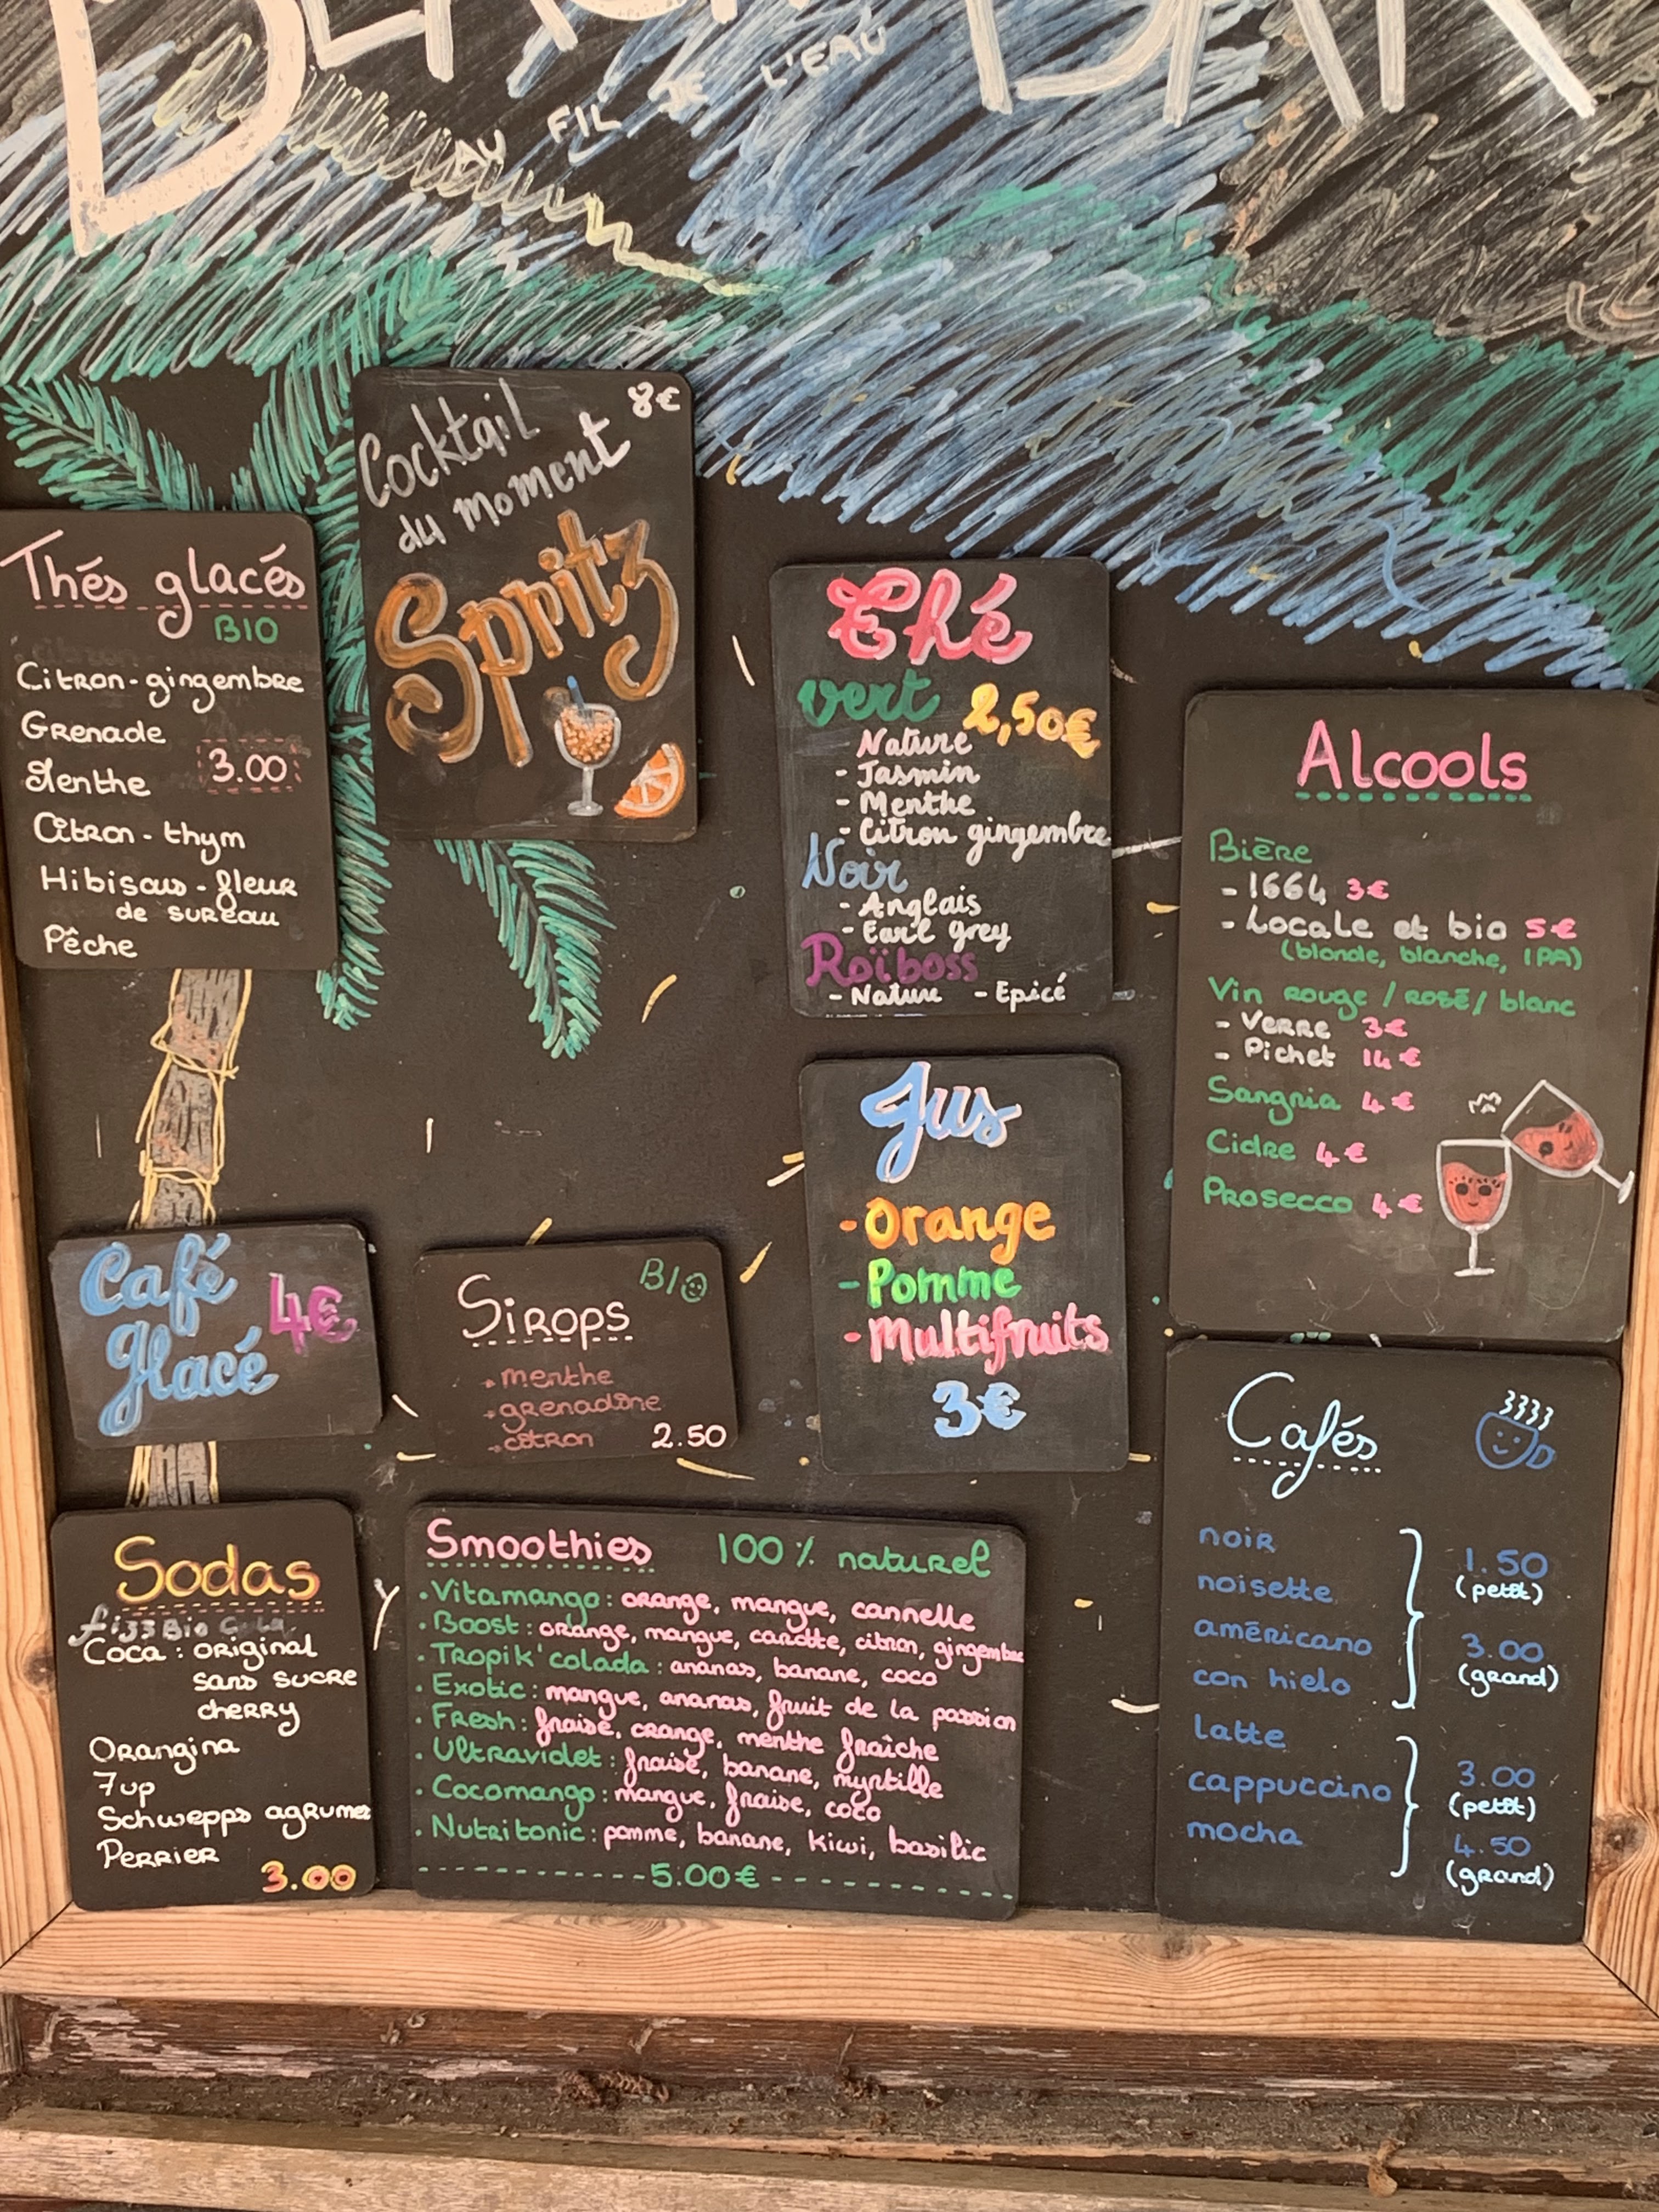 AU FIL DE L'EAU
Cocktail 8€
du moment
Spritz
Thés glacés
BIO
Citron-gingembre
Grenade
Menthe
3.00
Citron-thym
Hibiscus-fleur
de sureau
Pêche
Thé
vert 2,50€
Nature
- Jasmin
- Menthe
- Citron gingembre
Noir
- Anglais
- Earl grey
Roïboss
- Nature - Epicé
Alcools
Bière
- 1664 3€
- Locale et bio 5€
(blonde, blanche, IPA)
Vin rouge / rosé / blanc
- Verre 3€
- Pichet 14€
Sangria 4€
Cidre 4€
Prosecco 4€
Jus
- Orange
- Pomme
- Multifruits
3€
Café 4€
glacé
Sirops BIO
menthe
grenadine
citron 2.50
Cafés
noir
noisette
américano
con hielo
1.50
(petit)
3.00
(grand)
latte
cappuccino
mocha
3.00
(petit)
4.50
(grand)
Sodas
Coca : original
sans sucre
cherry
Orangina
7up
Schwepps agrumes
Perrier
3.00
Smoothies 100% naturel
. Vitamango : orange, mangue, cannelle
. Boost : orange, mangue, carotte, citron, gingembre
. Tropik'colada : ananas, banane, coco
. Exotic : mangue, ananas, fruit de la passion
. Fresh : fraise, orange, menthe fraîche
. Ultraviolet : fraise, banane, myrtille
. Cocomango : mangue, fraise, coco
. Nutritonic : pomme, banane, kiwi, basilic
5.00€